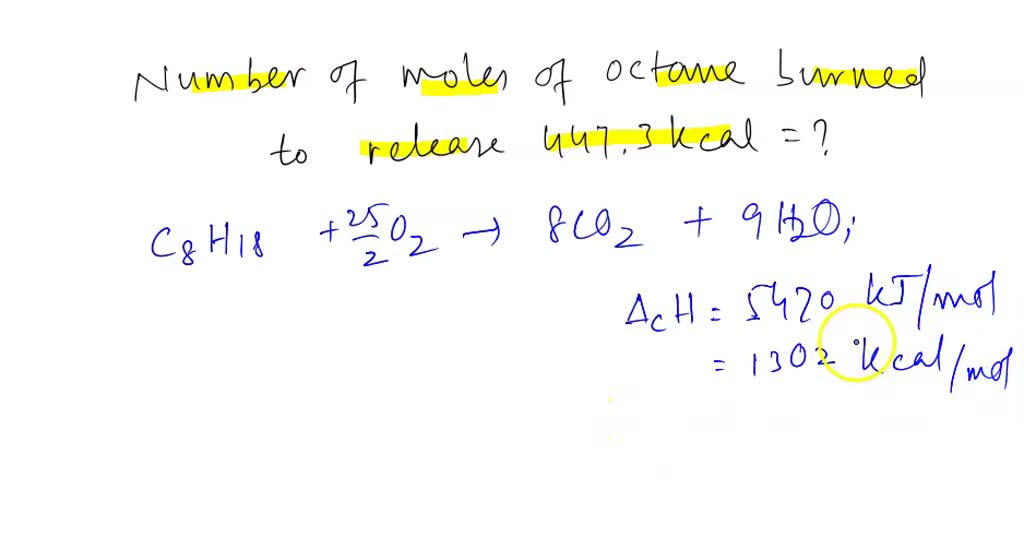 Number of moles of octane burned
to release 447.3 kcal = ?
C8H18 + 25/2 O2 → 8CO2 + 9H2O;
ΔcH = 5470 kJ/mol
= 1302 kcal/mol